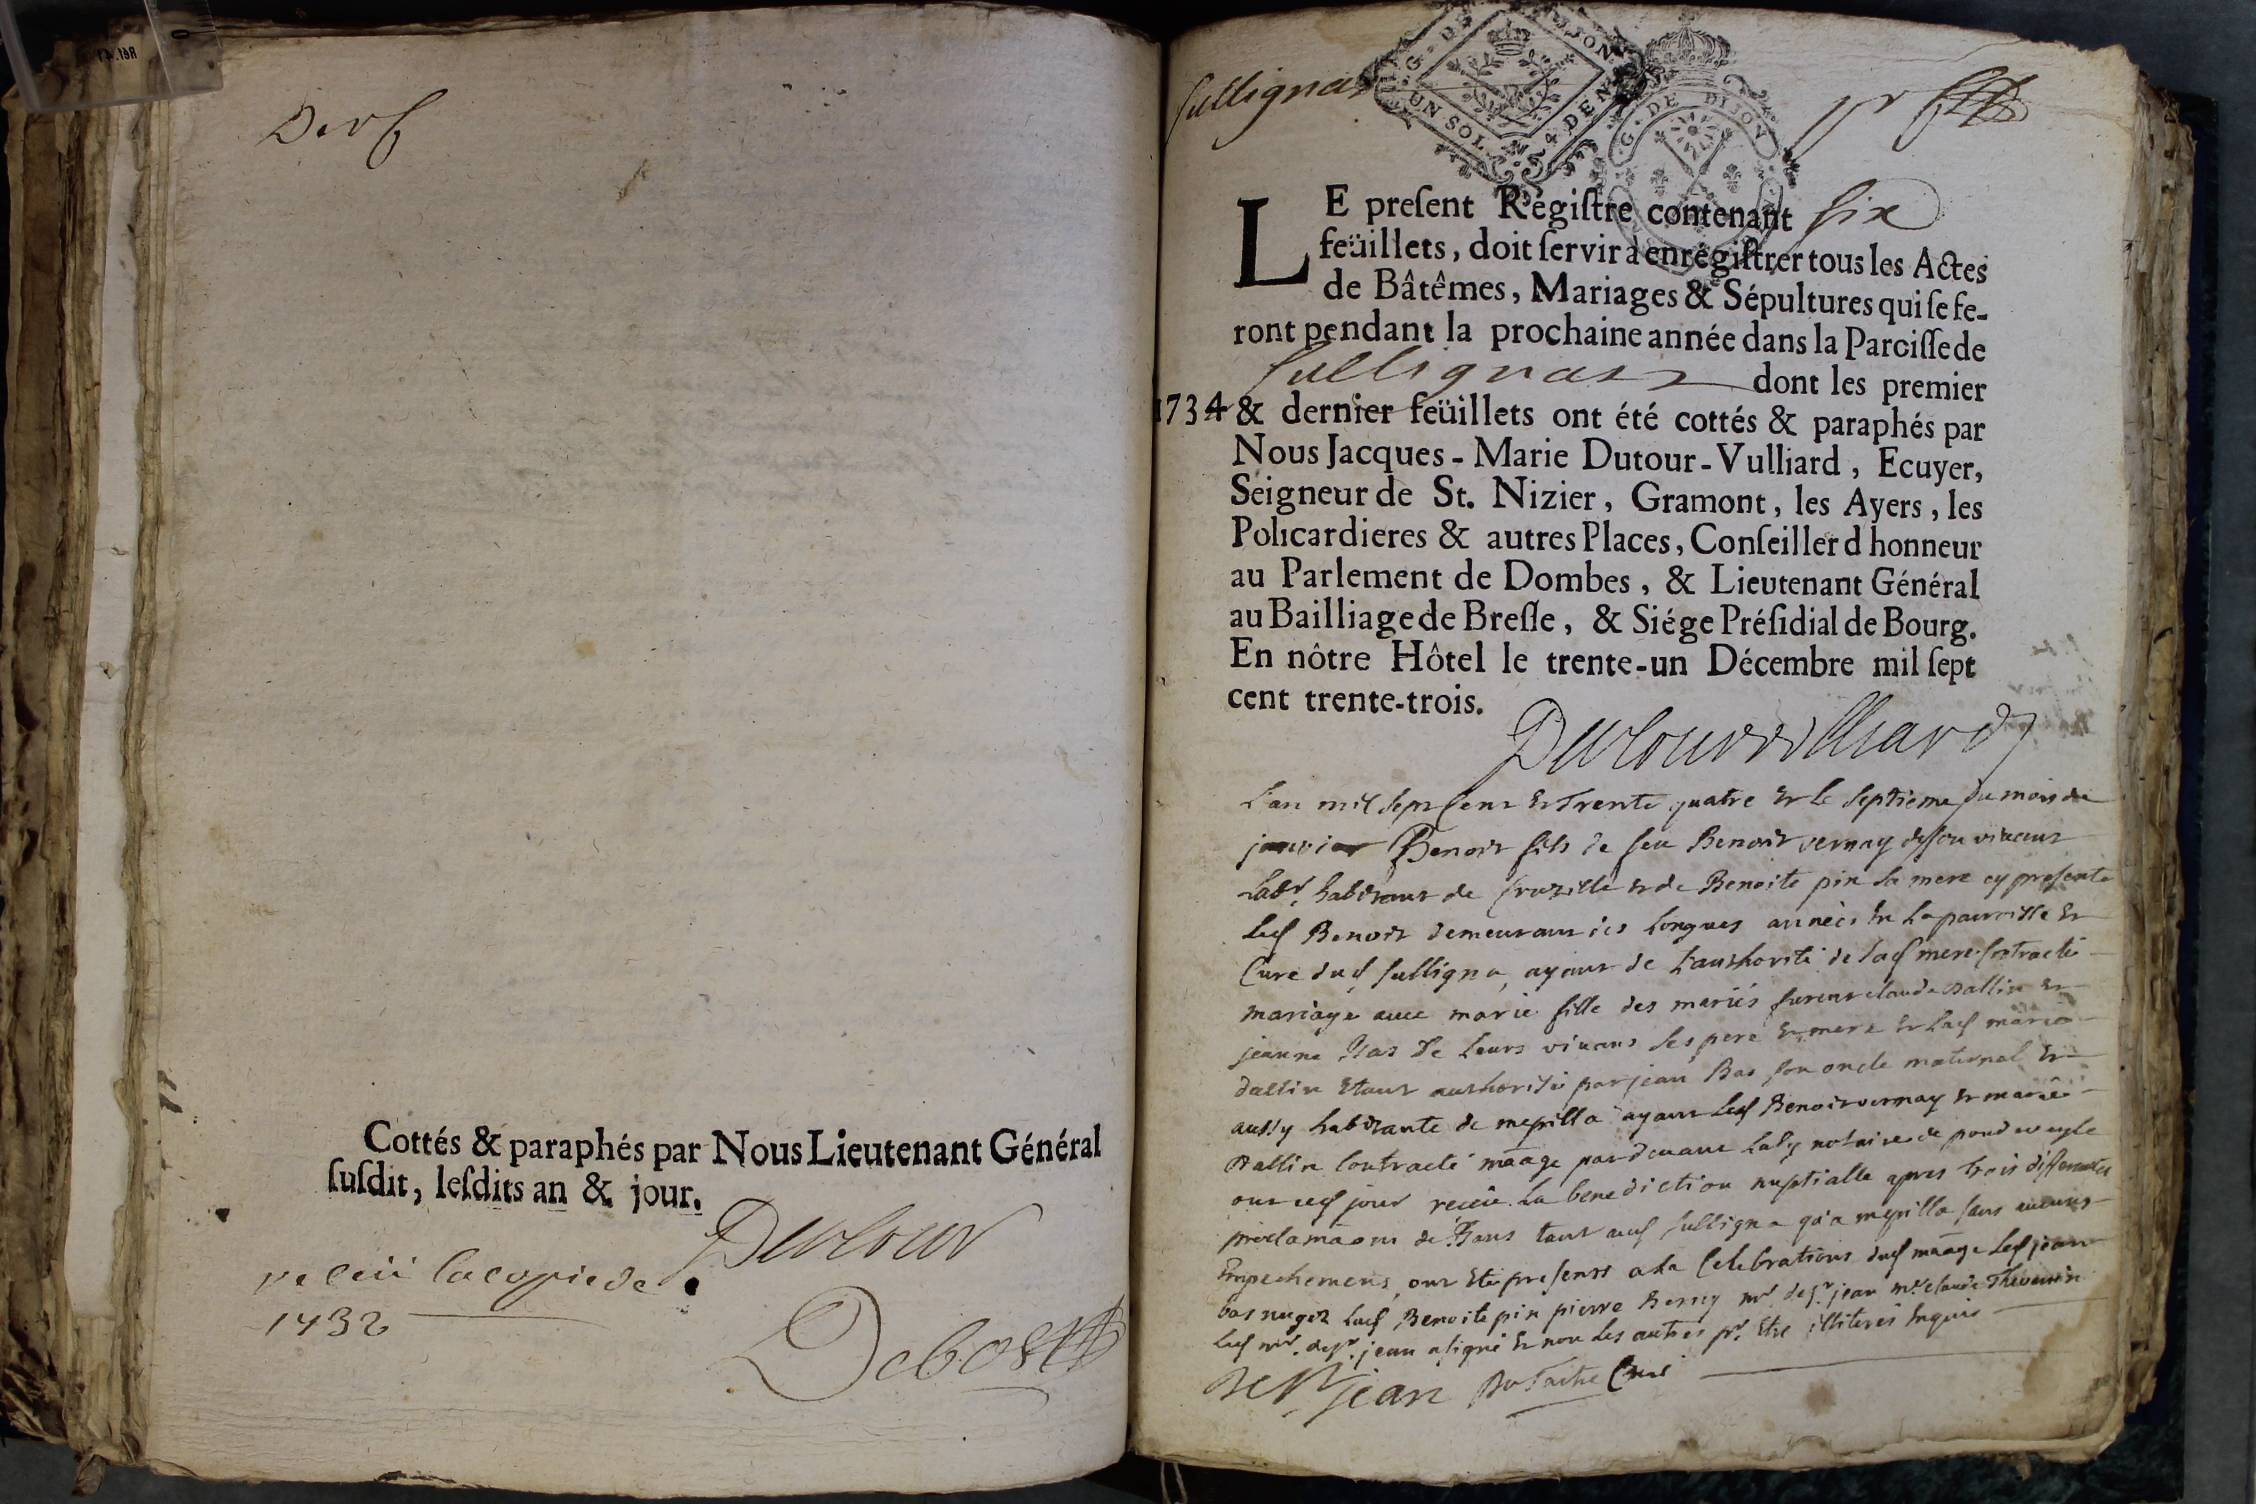 Derf
Cottés & paraphés par Nous Lieutenant Général
ſuſdit, leſdits an & jour.
Dutour
receü la copie de
1732
Debost
Sullignat
G. DE DIJON
UN SOL 4 DEN
G. DE DIJON
pr f
LE preſent Régiſtre contenant six
feüillets, doit ſervir à enrégiſtrer tous les Actes
de Bâtêmes, Mariages & Sépultures qui ſe fe-
ront pendant la prochaine année dans la Paroiſſe de
Sullignat dont les premier
1734 & dernier feüillets ont été cottés & paraphés par
Nous Jacques-Marie Dutour-Vulliard, Ecuyer,
Seigneur de St. Nizier, Gramont, les Ayers, les
Policardieres & autres Places, Conſeiller d honneur
au Parlement de Dombes, & Lieutenant Général
au Bailliage de Breſſe, & Siége Préſidial de Bourg.
En nôtre Hôtel le trente-un Décembre mil ſept
cent trente-trois.
Dutour vulliard
L'an mil sept cent et trente quatre et le septieme du mois de
janvier Benoit fils de feu Benoit vernay de son vivant
Labr. habitant de Cruzille et de Benoite pin sa mere cy presente
led Benoit demeurant des longues années en la parroisse et
Cure dud sulligna, ayant de l'authorité de lad mere Contracté
mariage avec marie fille des mariés furent claude dallin et
jeanne Bas de leurs vivans ses pere et mere et lad marie
dallin etant authorisée par jean Bas son oncle maternel et
aussy habitante de mepilla ayant led Benoit vernay et marie
dallin Contracté maage pardevant Laly notaire de pondeveyle
ont ced jour receu la benediction nuptialle apres trois differentes
proclamaons de Bans tant aud sulligna qu'a mepilla sans aucuns
Empechemens, ont eté presents a la Celebrations dud maage led jean
bas nugoz lad Benoite pin pierre Berrey mr. de st. jean mr. claude Thevenin
led mr. de st. jean a signé et non les autres pr. etre illiterés Enquis
De St jean Dutache Curé